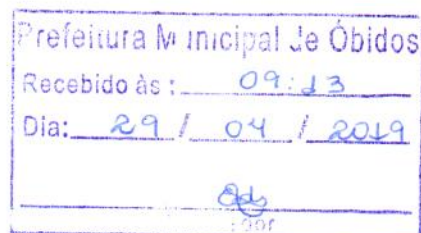 Prefeitura Municipal de Óbidos
Recebido às: 09:13
Dia: 29 / 04 / 2019